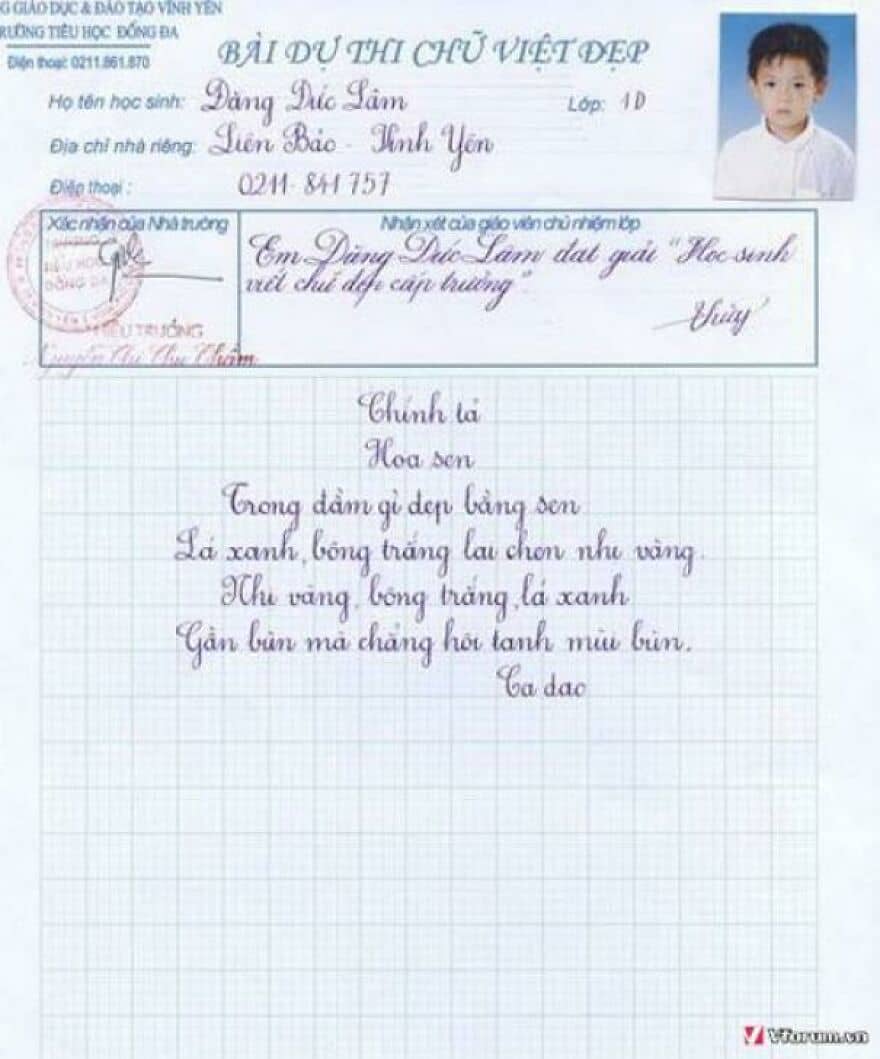 G GIÁO DỤC & ĐÀO TẠO VĨNH YÊN
RƯỜNG TIỂU HỌC ĐỐNG ĐA
Điện thoại: 0211.861.870
BÀI DỰ THI CHỮ VIỆT ĐẸP
Họ tên học sinh: Đặng Đức Lâm Lớp: 1D
Địa chỉ nhà riêng: Liên Bảo - Vĩnh Yên
Điện thoại: 0211. 841 757
Xác nhận của Nhà trường
Nhận xét của giáo viên chủ nhiệm lớp
Em Đặng Đức Lâm đạt giải "Học sinh
viết chữ đẹp cấp trường"
Thủy
TIỂU HỌC
ĐỐNG ĐA
HIỆU TRƯỞNG
Chính tả
Hoa sen
Trong đầm gì đẹp bằng sen
Lá xanh, bông trắng lại chen nhị vàng.
Nhị vàng, bông trắng, lá xanh
Gần bùn mà chẳng hôi tanh mùi bùn.
Ca dao
Vforum.vn